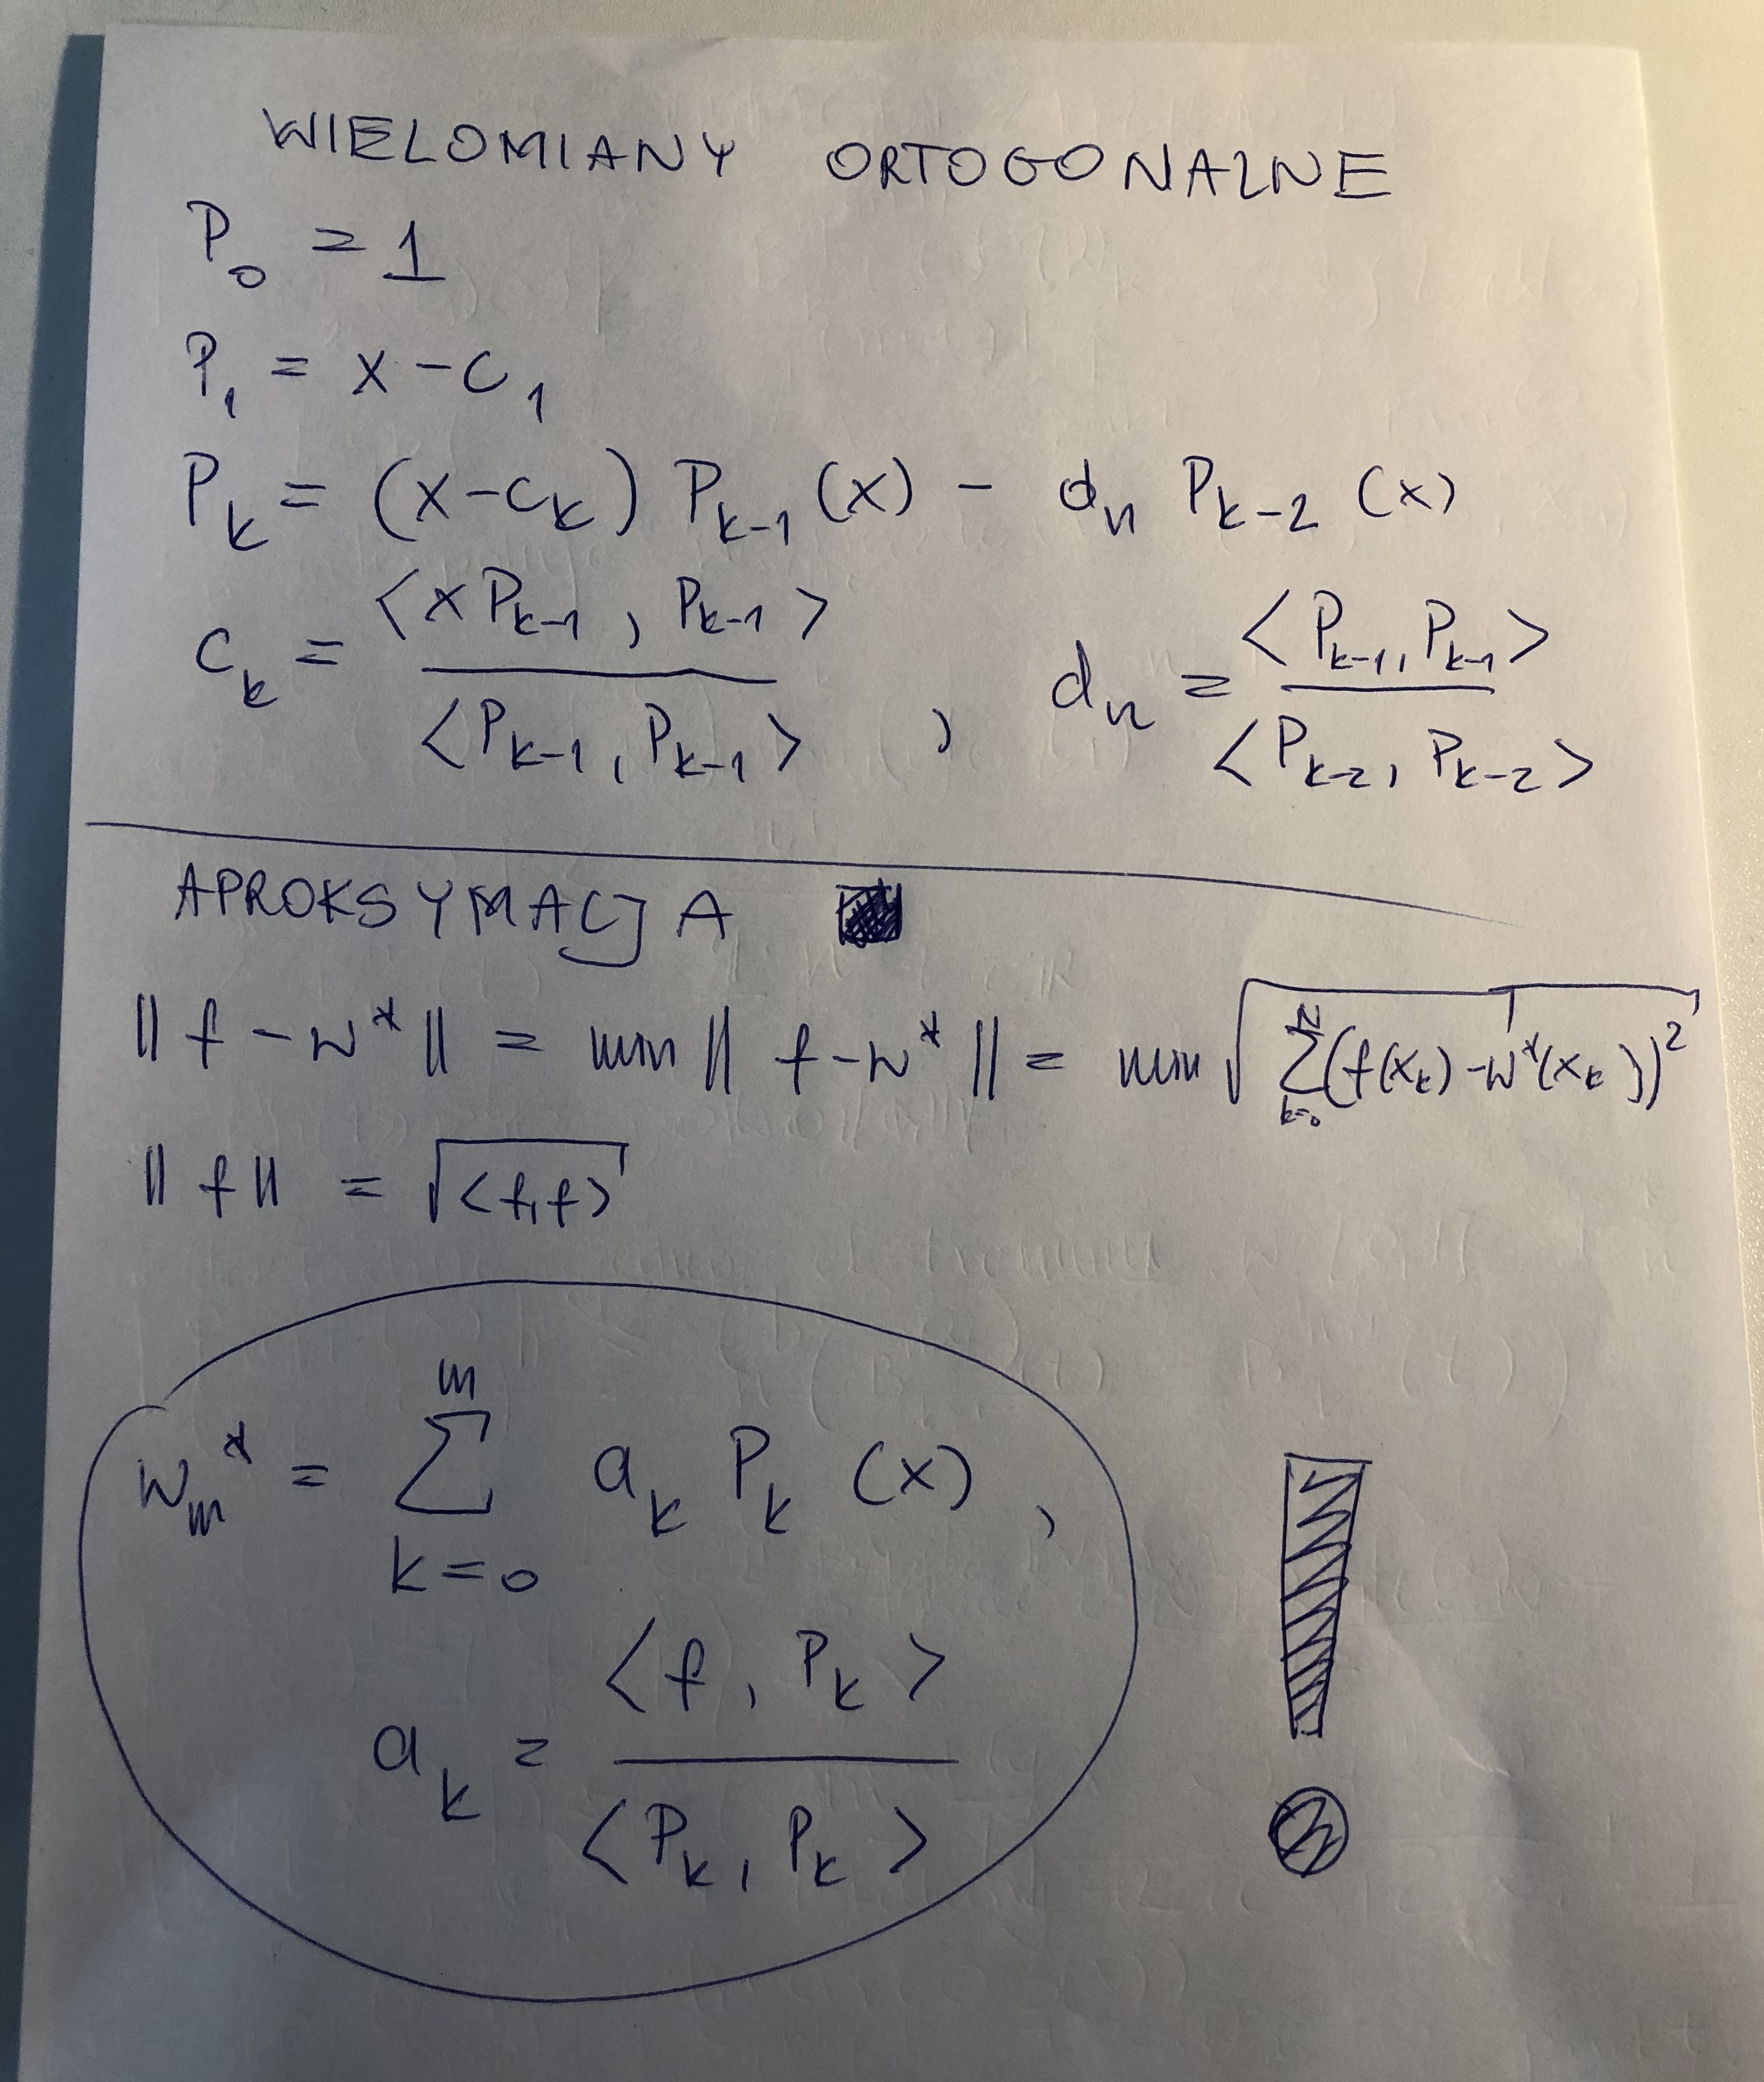 WIELOMIANY ORTOGONALNE
P₀ = 1
P₁ = x - c₁
Pₖ = (x-cₖ) Pₖ₋₁(x) - dₙ Pₖ₋₂(x)
cₖ = <xPₖ₋₁, Pₖ₋₁> / <Pₖ₋₁, Pₖ₋₁> , dₙ = <Pₖ₋₁, Pₖ₋₁> / <Pₖ₋₂, Pₖ₋₂>
APROKSYMACJA
|| f - w* || = min || f - w* || = min √(∑ₖ₌₀ᴺ (f(xₖ) - w*(xₖ))²)
|| f || = √<f,f>
wₘ* = ∑ₖ₌₀ᵐ aₖ Pₖ(x) ,
aₖ = <f, Pₖ> / <Pₖ, Pₖ>
!